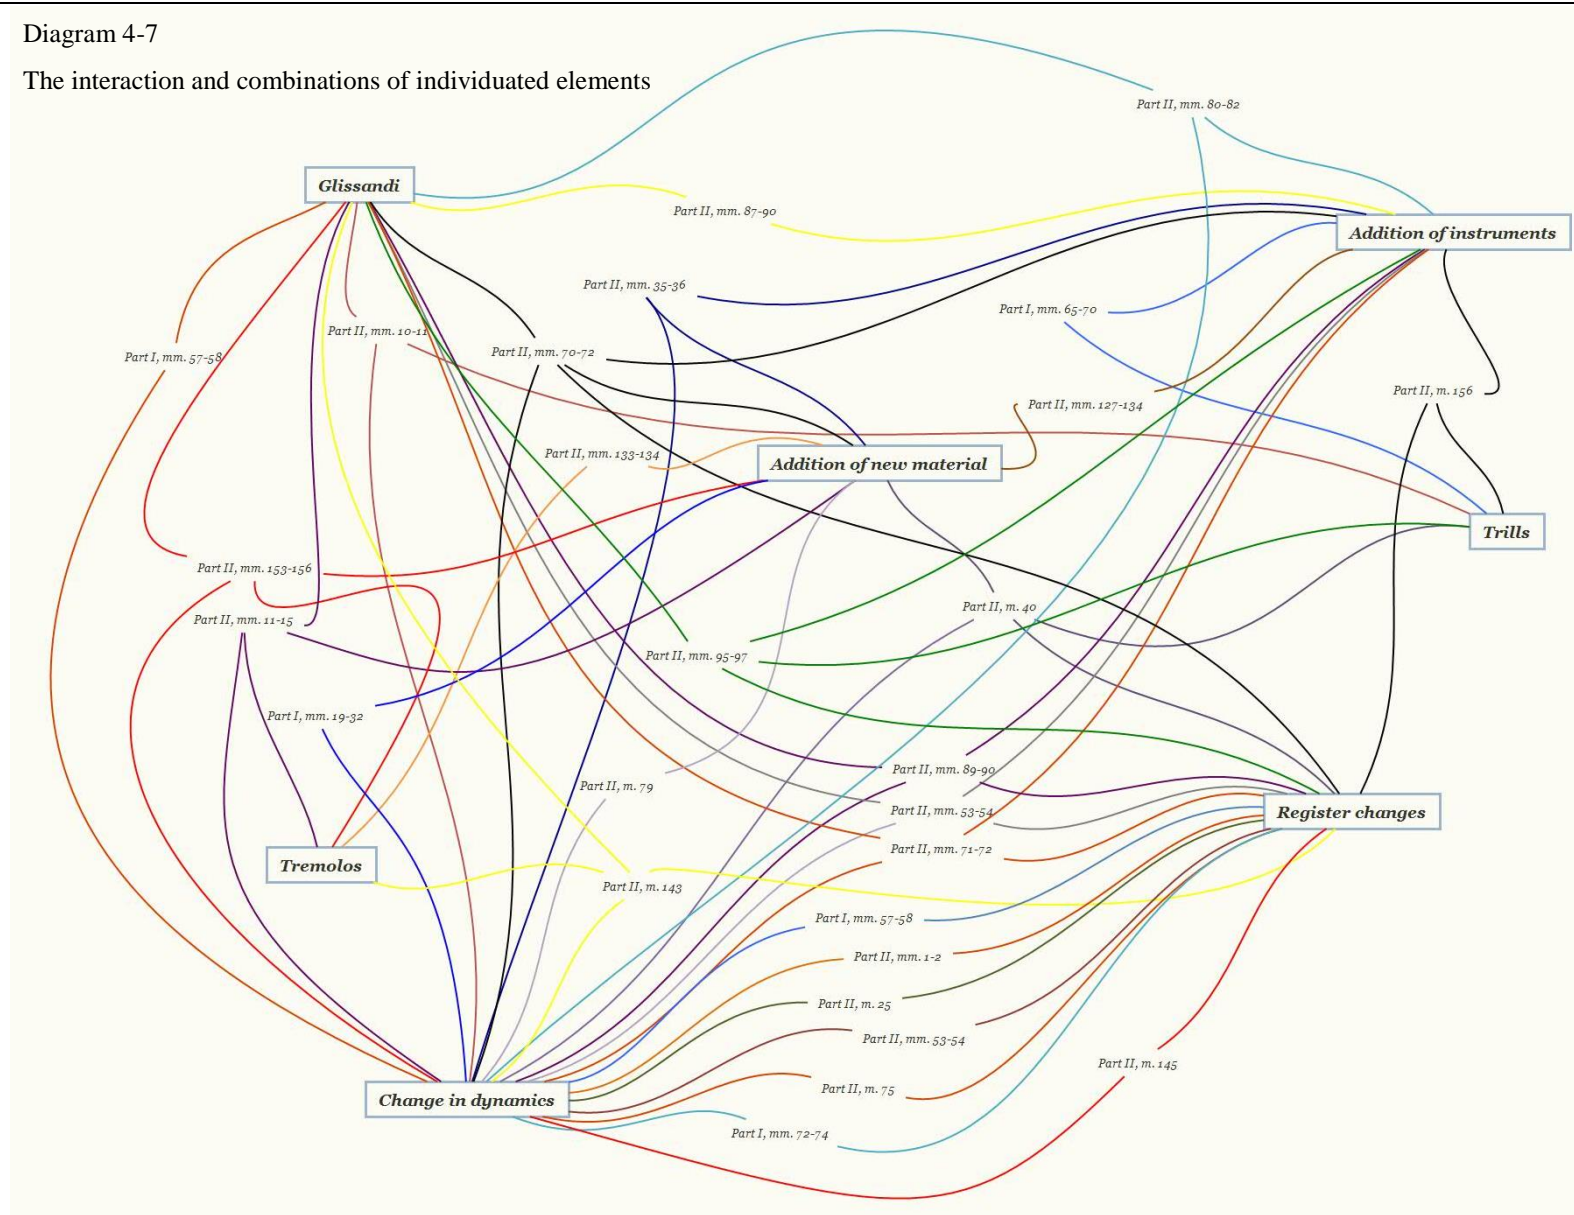 Diagram 4-7
The interaction and combinations of individuated elements
Part II, mm. 80-82
Glissandi
Part II, mm. 87-90
Addition of instruments
Part II, mm. 35-36
Part I, mm. 65-70
Part II, mm. 10-11
Part II, mm. 70-72
Part I, mm. 57-58
Part II, m. 156
Part II, mm. 127-134
Part II, mm. 133-134
Addition of new material
Trills
Part II, mm. 153-156
Part II, m. 40
Part II, mm. 11-15
Part II, mm. 95-97
Part I, mm. 19-32
Part II, mm. 89-90
Part II, m. 79
Part II, mm. 53-54
Register changes
Part II, mm. 71-72
Tremolos
Part II, m. 143
Part I, mm. 57-58
Part II, mm. 1-2
Part II, m. 25
Part II, mm. 53-54
Part II, m. 145
Part II, m. 75
Change in dynamics
Part I, mm. 72-74